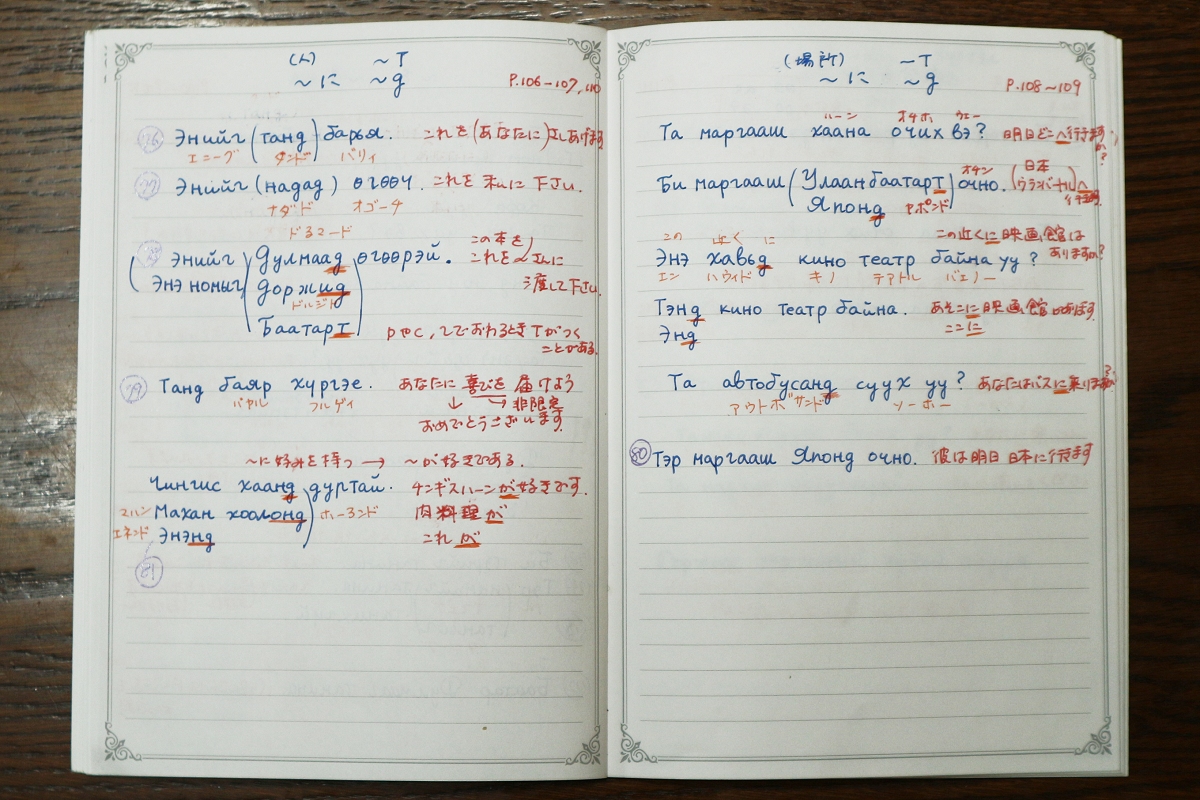 (人) ～т
～に ～д P.106-107, 110
76 Энийг (танд) барья. これを(あなたに)さしあげます
エニーグ ダンド バリィ
77 Энийг (надад) өгөөч. これを 私に 下さい.
ナダド オゴーチ
ドるマード
78 Энийг Дулмаад өгөөрэй. この本を
Энэ номыг Доржид これを〜さんに
ドルジド 渡して下さい.
Баатарт рやс, гでおわるときTがつく
ことがある.
79 Танд баяр хүргэе. あなたに 喜びを 届けよう
バヤル フルゲィ ↓ 非限定
おめでとうございます.
～に好みを持つ → ～が好きである.
Чингис хаанд дуртай. チンギスハーンが好きです.
マハン Махан хоолонд ホーろンド 肉料理が
エネンド Энэнд これが
81
(場所) ～т
～に ～д P.108～109
ハーン オチホ ウェー
Та маргааш хаана очих вэ? 明日どこへ行きますか?
オチン 日本
Би маргааш (Улаанбаатарт) очно. (ウランバートル)へ
Японд ヤポンド 行きます.
この 近く に この近くに映画館は
Энэ хавьд кино театр байна уу? ありますか?
エン ハウィド キノ テアトル バェノー
Тэнд кино театр байна. あそこに映画館があります.
Энд ここに
Та автобусанд суух уу? あなたはバスに乗りますか?
アウトボサンド ソーホー
80 Тэр маргааш Японд очно. 彼は明日 日本に行きます